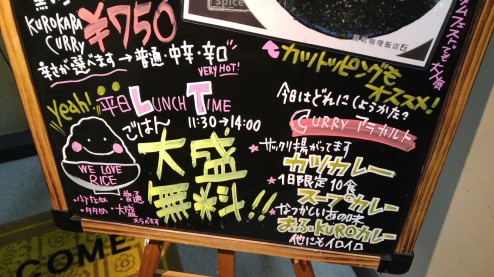 KUROKARA
CURRY
¥750
Spice
辛さが選べます→普通・中辛・辛口
VERY HOT!
カツトッピングも
オススメ!
yeah!
平日 LUNCH TIME
11:30→14:00
ごはん
大盛
無料!!
WE LOVE
RICE
・普通
・大盛
今日はどれにしようかな?
CURRY アラカルト
ザックリ揚がってます
カツカレー
1日限定10食
スープカレー
なつかしいあの味
KUROカレー
他にもイロイロ
COME